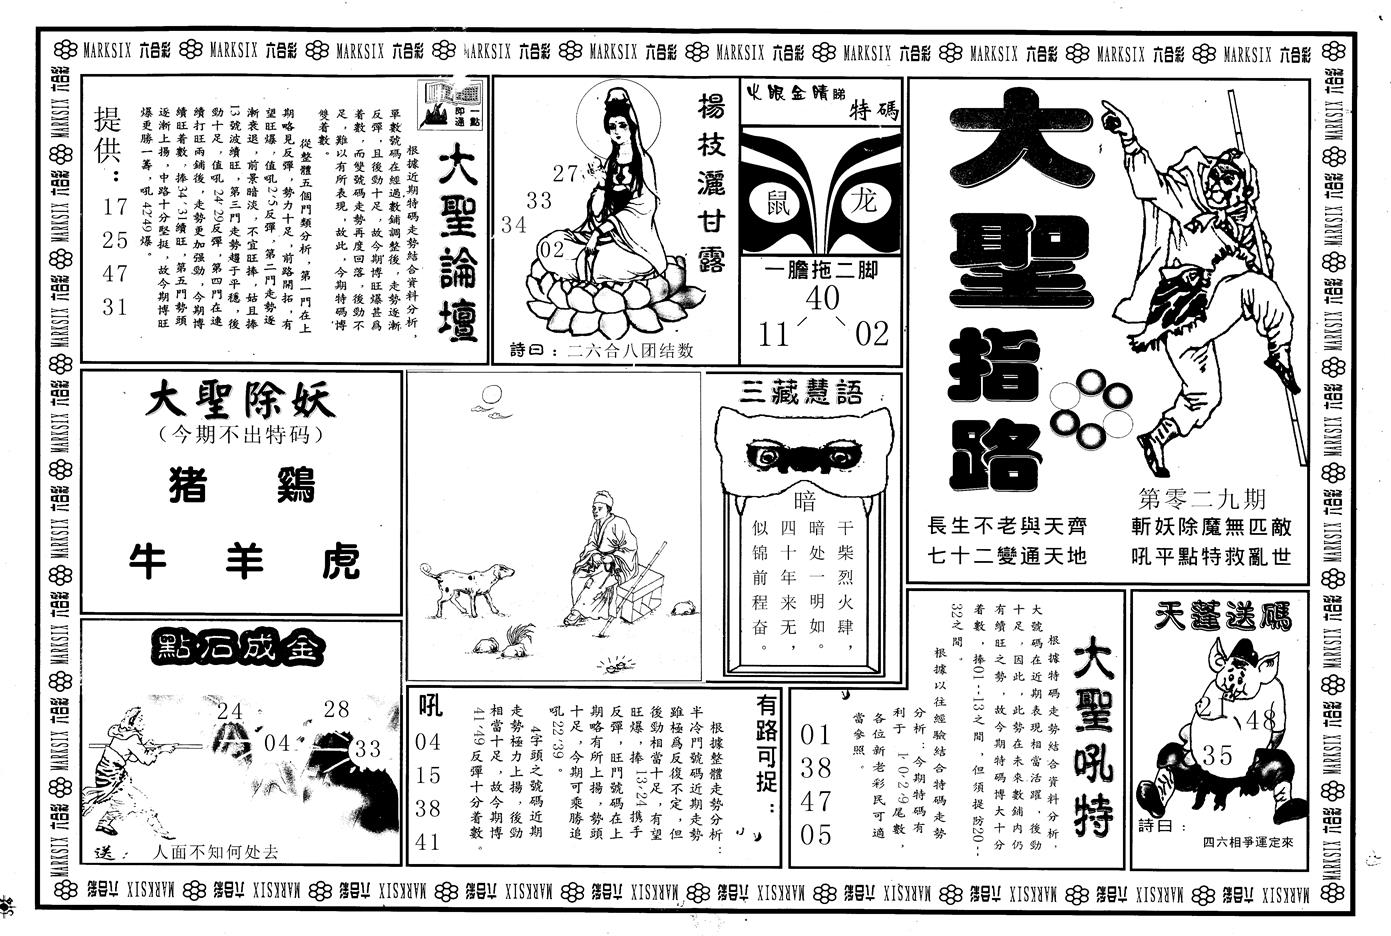 MARKSIX 六合彩 MARKSIX 六合彩 MARKSIX 六合彩 MARKSIX 六合彩 MARKSIX 六合彩 MARKSIX 六合彩 MARKSIX 六合彩 MARKSIX 六合彩 MARKSIX 六合彩 MARKSIX 六合彩
大聖指路
第零二九期
長生不老與天齊
七十二變通天地
斬妖除魔無匹敵
吼平點特救亂世
火眼金睛睇特碼
鼠
龙
一膽拖二脚
40
11
02
楊枝灑甘露
27
33
34
02
詩曰：二六合八团结数
一點即通
大聖論壇
根據近期特碼走勢結合資料分析，
單數號碼在經過數鋪調整後，走勢逐漸
反彈，且後勁十足，故今期博旺爆甚爲
着數，而雙號碼走勢再度回落，後勁不
足，難以有所表現，故此，今期特碼博
雙着數。
從整體五個門類分析，第一門在上
期略見反彈，勢力十足，前路開拓，有
望旺爆，值吼2·5反彈，第二門走勢逐
漸衰退，前景暗淡，不宜旺捧，姑且捧
13號波續旺，第三門走勢趨于平穩，後
勁十足，值吼24·29反彈，第四門在連
續打旺兩鋪後，走勢更加强勁，今期博
續旺着數，捧34·31續旺，第五門勢頭
逐漸上揚，中路十分堅挺，故今期博旺
爆更勝一籌，吼42·49爆。
提供：
17
25
47
31
大聖除妖
（今期不出特码）
猪 鷄
牛 羊 虎
三藏慧語
暗
干柴烈火肆，
暗处一明如。
四十年来无，
似锦前程奋。
點石成金
24
28
04
33
送：人面不知何处去
有路可捉：
根據整體走勢分析：
半冷門號碼近期走勢
雖極爲反復不定，但
後勁相當十足，有望
旺爆，捧13·24携手
反彈，旺門號碼在上
期略有所上揚，勢頭
十足，今期可乘勝追
吼22·39。
4字頭之號碼近期
走勢極力上揚，後勁
相當十足，故今期博
41·49反彈十分着數。
吼
04
15
38
41
大聖吼特
根據特碼走勢結合資料分析，
大號碼在近期表現相當活躍，後勁
十足，因此，此勢在未來數鋪内仍
有續旺之勢，故今期特碼博大十分
着數，捧01--13之間，但須提防20--
32之間。
根據以往經驗結合特碼走勢
分析：今期特碼有
利于1·0·2·9尾數，
各位新老彩民可適
當參照。
01
38
47
05
天蓬送碼
21
48
35
詩曰：
四六相爭運定來